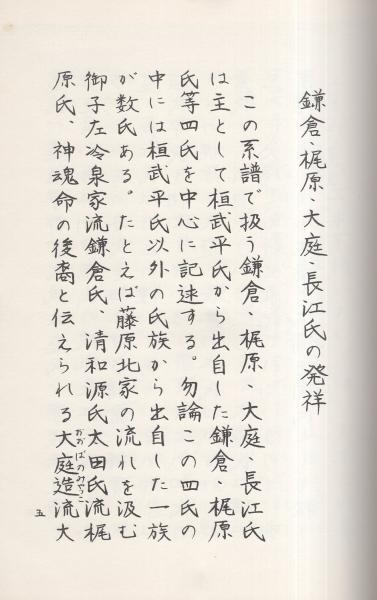 鎌倉、梶原、大庭、長江氏の発祥
この系譜で扱う鎌倉、梶原、大庭、長江氏
は主として桓武平氏から出自した鎌倉、梶原
氏等四氏を中心に記述する。勿論この四氏の
中には桓武平氏以外の氏族から出自した一族
が数氏ある。たとえば藤原北家の流れを汲む
御子左冷泉家流鎌倉氏、清和源氏太田氏流梶
原氏、神魂命の後裔と伝えられる大庭造流大
おおばのみやつこ
五